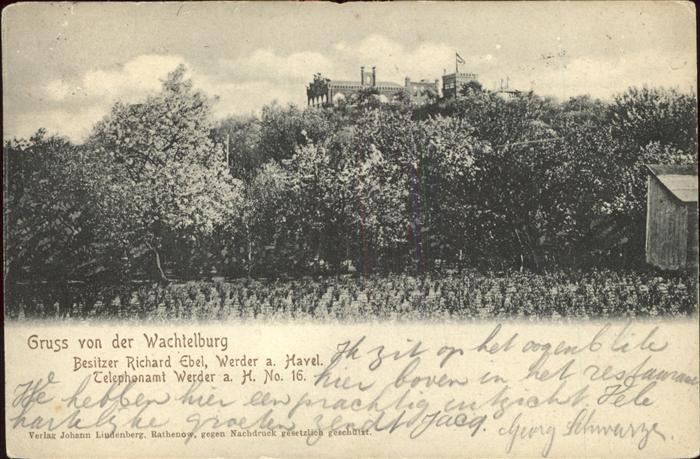 Gruss von der Wachtelburg
Besitzer Richard Ebel, Werder a. Havel.
Telephonamt Werder a. H. No. 16.
Ik zit op het oogenblik
hier boven in het restaurant
We hebben hier een prachtig uitzicht. Vele
hartelijke groeten zendt Jacq.
Georg Schwarze.
Verlag Johann Lindenberg, Rathenow, gegen Nachdruck gesetzlich geschützt.